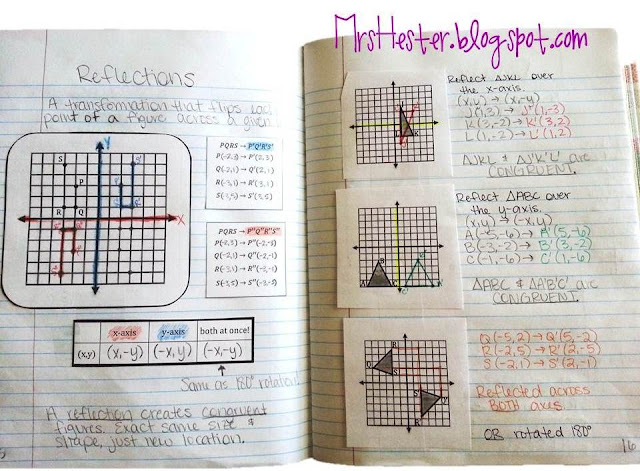 MrsHester.blogspot.com
Reflections
A transformation that flips each
point of a figure across a given
Y
X
PQRS → P'Q'R'S'
P(-2,3) → P'(2,3)
Q(-2,1) → Q'(2,1)
R(-3,1) → R'(3,1)
S(-3,5) → S'(3,5)
PQRS → P"Q"R"S"
P(-2,3) → P"(-2,-3)
Q(-2,1) → Q"(-2,-1)
R(-3,1) → R"(-3,-1)
S(-3,5) → S"(-3,-5)
x-axis y-axis both at once!
(x,y) (x,-y) (-x,y) (-x,-y)
Same as 180° rotation!
A reflection creates congruent
figures. Exact same size &
shape, just new location.
Reflect △JKL over
the x-axis.
(x,y) → (x,-y)
J(1,3) → J'(1,-3)
K(3,-2) → K'(3,2)
L(1,-2) → L'(1,2)
△JKL & △J'K'L' are
CONGRUENT.
Reflect △ABC over
the y-axis.
(x,y) → (-x,y)
A(-5,-6) → A'(5,-6)
B(-3,-2) → B'(3,-2)
C(-1,-6) → C'(1,-6)
△ABC & △A'B'C' are
CONGRUENT.
Q(-5,2) → Q'(5,-2)
R(-2,5) → R'(2,-5)
S(-2,1) → S'(2,-1)
Reflected across
BOTH axes
OR rotated 180°
16